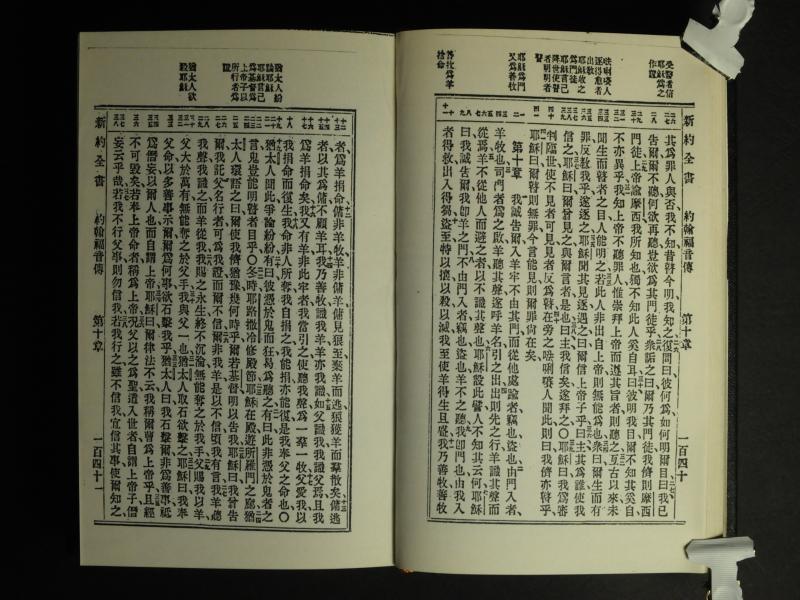 受瞽者信
耶穌爲之
作證
㕸唎㘔人
逐得愈者
出教
耶穌收之
爲門徒
耶穌言己
降世使瞽
者明明者
瞽
耶穌爲門
又爲善牧
善牧爲羊
捨命
其爲罪人與否我不知昔瞽今明我知之復問曰彼何爲如何明爾目曰我已
告爾爾不聽何欲再聽豈欲爲其門徒乎衆詬之曰爾乃其門徒我儕則摩西
門徒上帝諭摩西我所知也獨不知此人奚自耳曰彼明我目爾不知其奚自
不亦異乎我知上帝不聽罪人惟崇拜上帝而遵其旨者則聽之亙古以來未
聞生而瞽者之目人能明之若此人非出自上帝則無能爲也衆曰爾生而有
罪反教我乎遂逐之耶穌聞其見逐遇之曰爾信上帝子乎曰主其爲誰使我
信之耶穌曰爾曾見之與爾言者是也曰主我信矣遂拜之〇耶穌曰我爲審
判臨世使不見者可見見者反爲瞽在旁之㕸唎㘔人聞此則曰我儕亦瞽乎
耶穌曰爾瞽則無罪今言能見則爾罪尙在矣
第十章 我誠告爾入羊牢不由其門而從他處踰者竊也盜也由門入者
羊牧也司門者爲之啟羊聽其聲遂呼羊名引之出出則先之行羊識其聲而
從焉羊不從他人而避之者以不識其聲也耶穌設此譬人不知其云何耶穌
曰我誠告爾我卽羊之門不由門入者竊也盜也羊不之聽我卽門也由我入
者得救出入得芻盜至特以攘以殺以滅我至使羊得生且盛我乃善牧善牧
新約全書 約翰福音傳 第十章 一百四十
猶太人紛
論耶穌
耶穌言己
爲基督爲
上帝子以
所行者爲
證
猶太人欲
殺耶穌
者爲羊捐命傭非羊牧羊非傭羊傭見狼至棄羊而逃狼獲羊而羣散矣傭逃
者以其爲傭不顧羊耳我乃善牧識我羊羊亦我識如父識我我識父焉且我
爲羊捐命矣我又有羊非此牢者我當引之使聽我聲爲一羣一牧父愛我以
我捐命而復生我命非人所奪我自捐之我能捐亦能復是我奉父之命也〇
猶太人聞此爭論紛紛有曰彼憑於鬼而狂曷爲聽之有曰此非憑於鬼者之
言鬼豈能明瞽者目乎〇冬時耶路撒冷修殿節耶穌在殿遊所羅門之廊猶
太人環語之曰爾使我儕猶豫幾何時乎爾若基督明以告我耶穌曰我曾告
爾我託父名行者可爲我證而爾不信爾非我羊是以不信頃我有言我羊聽
我聲我識之而羊從我我賜之永生終不沉淪無能奪之於我手父賜我以羊
父大於萬有無能奪之於父手我與父一也猶太人取石欲擊之耶穌曰我奉
父命以多善事示爾爾爲何事欲石擊我乎猶太人曰我石擊爾非爲善事祗
爲僭妄以爾人也而自謂上帝耶穌曰爾律法不云我稱爾曹爲上帝乎且經
不可毀矣若奉上帝命者稱爲上帝況父以之爲聖遣入世者自謂上帝子僭
妄云乎哉若我不行父事則勿信我若我行之雖不信我宜信其事使爾知之
新約全書 約翰福音傳 第十章 一百四十一